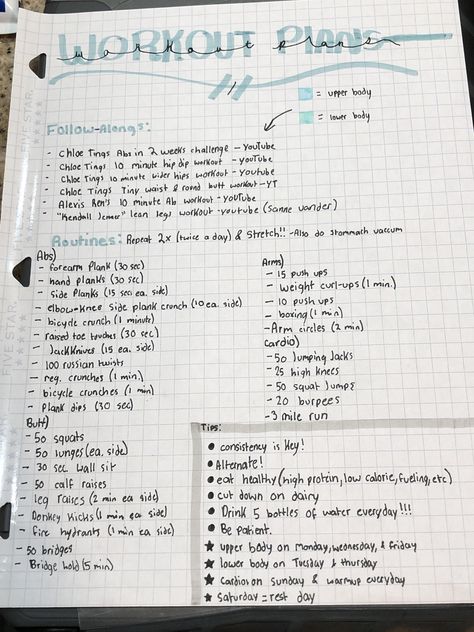 WORKOUT PLANS
workout plans
= upper body
= lower body
Follow-Alongs:
- Chloe Tings Abs in 2 weeks challenge - YouTube
- Chloe Tings 10 minute hip dip workout - youTube
- Chloe Tings 10 minute wider hips workout - youtube
- Chloe Tings Tiny waist & round butt workout - YT
- Alexis Ren's 10 minute Ab workout - youTube
- "Kendall Jenner" lean legs workout - youtube (Sanne vander)
Routines: Repeat 2x (twice a day) & stretch!! - Also do stommach vaccum
Abs)
- forearm plank (30 sec)
- hand planks (30 sec)
- side planks (15 sec ea. side)
- elbow-knee side plank crunch (10 ea. side)
- bicycle crunch (1 minute)
- raised toe touches (30 sec)
- Jackknives (15 ea. side)
- 100 russian twists
- reg. crunches (1 min)
- bicycle crunches (1 min)
- plank dips (30 sec)
Butt)
- 50 squats
- 50 lunges (ea. side)
- 30 sec wall sit
- 50 calf raises
- leg raises (2 min ea side)
- Donkey kicks (1 min ea side)
- Fire hydrants (1 min ea side)
- 50 bridges
- Bridge hold (5 min)
Arms)
- 15 push ups
- weight curl-ups (1 min.)
- 10 push ups
- boxing (1 min)
- Arm circles (2 min)
Cardio)
- 50 Jumping Jacks
- 25 high knees
- 50 squat Jumps
- 20 burpees
- 3 mile run
Tips:
● consistency is Key!
● Alternate!
● eat healthy (high protein, low calorie, fueling, etc)
● cut down on dairy
● Drink 5 bottles of water everyday!!!
● Be patient.
★ upper body on monday, wednesday, & friday
★ lower body on Tuesday & thursday
★ Cardio on sunday & warmup everyday
★ Saturday = rest day
FIVE STAR.
FIVE STAR.